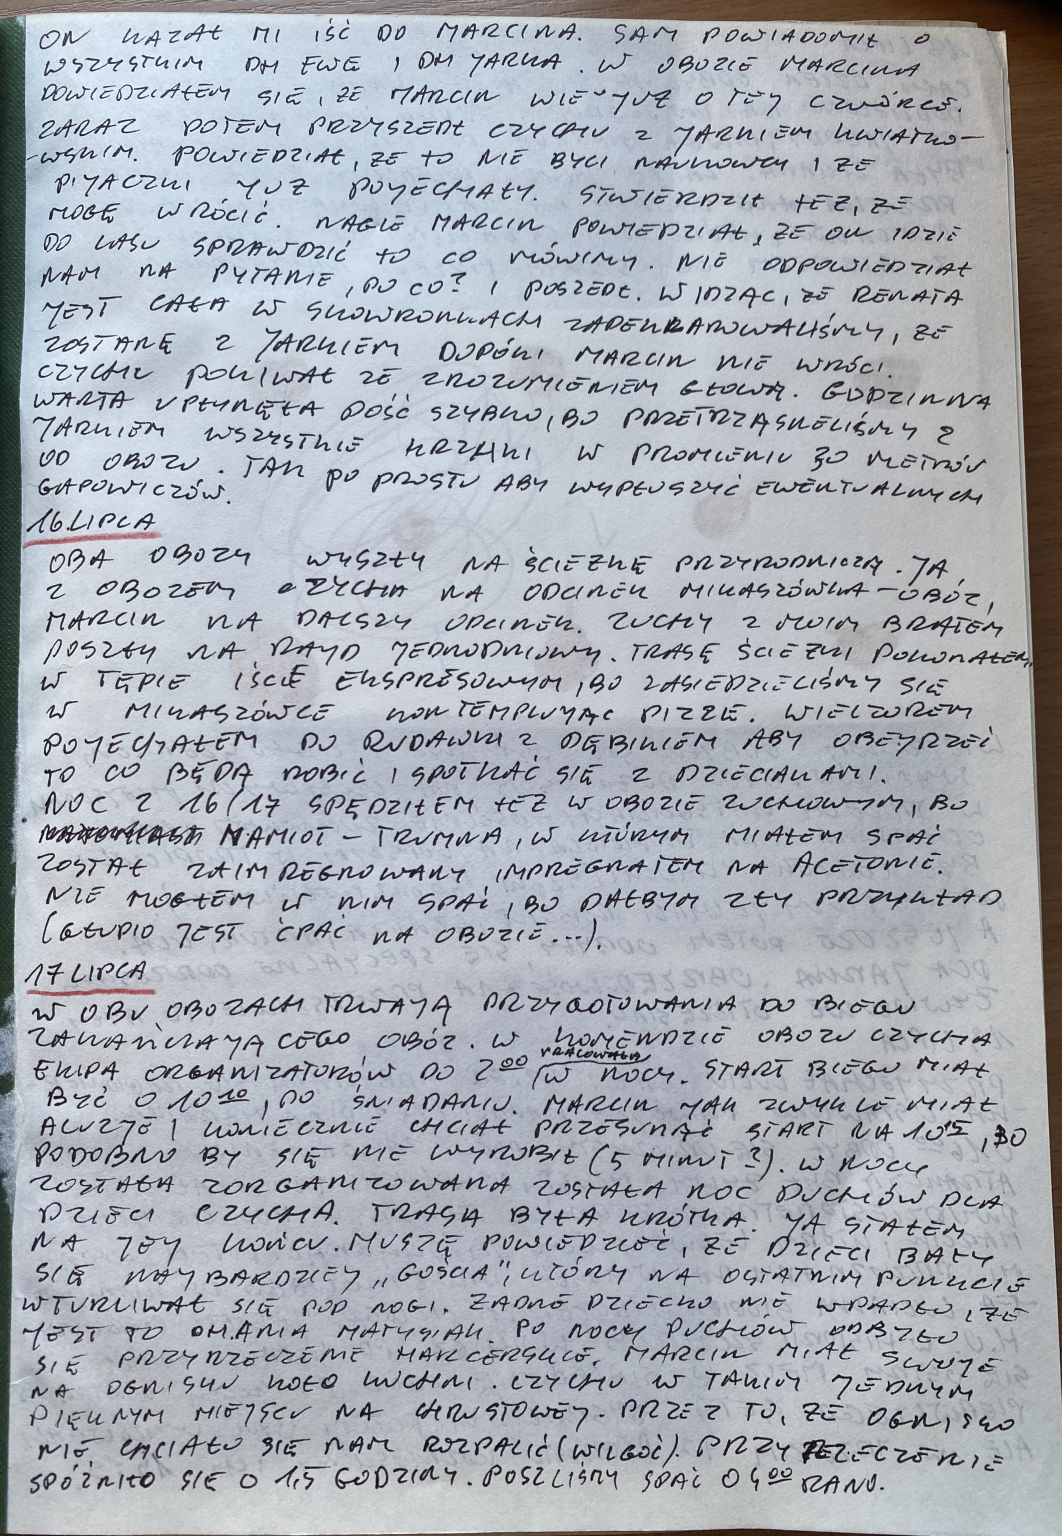 ON KAZAŁ MI IŚĆ DO MARCINA. SAM POWIADOMIŁ O
WSZYSTKIM DH EWĘ I DH JARKA. W OBOZIE MARCINA
DOWIEDZIAŁEM SIĘ, ŻE MARCIN WIE JUŻ O TEJ CZWÓRCE.
ZARAZ POTEM PRZYSZEDŁ CZYCHU Z JARKIEM KWIATKO-
-WSKIM. POWIEDZIAŁ, ŻE TO NIE BYLI NAUKOWCY I ŻE
PIJACZKI JUŻ POJECHAŁY. STWIERDZIŁ TEŻ, ŻE
MOGĘ WRÓCIĆ. NAGLE MARCIN POWIEDZIAŁ, ŻE ON IDZIE
DO LASU SPRAWDZIĆ TO CO MÓWIMY. NIE ODPOWIEDZIAŁ
NAM NA PYTANIE, PO CO? I POSZEDŁ. WIDZĄC, ŻE RENATA
JEST CAŁA W SKOWRONKACH ZADEKLAROWALIŚMY, ŻE
ZOSTANĘ Z JARKIEM DOPÓKI MARCIN NIE WRÓCI.
CZYCHU POKIWAŁ ZE ZROZUMIENIEM GŁOWĄ. GODZINNA
WARTA UPŁYNĘŁA DOŚĆ SZYBKO, BO PRZETRZĄSNELIŚMY Z
JARKIEM WSZYSTKIE KRZAKI W PROMIENIU 30 METRÓW
OD OBOZU. TAK PO PROSTU ABY WYPŁUSZYĆ EWENTUALNYCH
GAPOWICZÓW.
16.LIPCA
OBA OBOZY WYSZŁY NA ŚCIEŻKĘ PRZYRODNICZĄ. JA
Z OBOZEM CZYCHA NA ODCINEK MIKASZÓWKA-OBÓZ,
MARCIN NA DALSZY ODCINEK. ZUCHY Z MOIM BRATEM
POSZŁY NA RAJD JEDNODNIOWY. TRASĘ ŚCIEŻKI POKONAŁEM
W TĘPIE IŚCIE EKSPRESOWYM, BO ZASIEDZIELIŚMY SIĘ
W MIKASZÓWCE KONTEMPLUJĄC PIZZE. WIECZOREM
POJECHAŁEM DO RUDAWKI Z DĘBIKIEM ABY OBEJRZEĆ
TO CO BĘDĄ ROBIĆ I SPOTKAĆ SIĘ Z DZIECIAKAMI.
NOC Z 16/17 SPĘDZIŁEM TEŻ W OBOZIE ZUCHOWYM, BO
NAMIOT - TRUMNA, W KTÓRYM MIAŁEM SPAĆ
ZOSTAŁ ZAIMPREGNOWANY IMPREGNATEM NA ACETONIE.
NIE MOGŁEM W NIM SPAĆ, BO DAŁBYM ZŁY PRZYKŁAD
(GŁUPIO JEST ĆPAĆ NA OBOZIE...).
17 LIPCA
W OBU OBOZACH TRWAJĄ PRZYGOTOWANIA DO BIEGU
ZAKAŃCZAJĄCEGO OBÓZ. W KOMENDZIE OBOZU CZYCHA
EKIPA ORGANIZATORÓW DO 2⁰⁰ PRACOWAŁA W NOCY. START BIEGU MIAŁ
BYĆ O 10¹⁰, PO ŚNIADANIU. MARCIN JAK ZWYKLE MIAŁ
ALUZJE I KONIECZNIE CHCIAŁ PRZESUNĄĆ START NA 10¹⁵, BO
PODOBNO BY SIĘ NIE WYROBIŁ (5 MINUT?). W NOCY
ZOSTAŁA ZORGANIZOWANA ZOSTAŁA NOC DUCHÓW DLA
DZIECI CZYCHA. TRASA BYŁA KRÓTKA. JA STAŁEM
NA JEJ KOŃCU. MUSZĘ POWIEDZIEĆ, ŻE DZIECI BAŁY
SIĘ NAJBARDZIEJ „GOŚCIA", KTÓRY NA OSTATNIM PUNKCIE
WTURLIWAŁ SIĘ POD NOGI. ŻADNE DZIECKO NIE WPADŁO, ŻE
JEST TO DH.ANIA MATYSIAK. PO NOCY DUCHÓW ODBYŁO
SIĘ PRZYRZECZENIE HARCERSKIE. MARCIN MIAŁ SWOJE
NA OGNISKU KOŁO KUCHNI. CZYCHU W TAKIM JEDNYM
PIĘKNYM MIEJSCU NA CHRUSTOWEJ. PRZEZ TO, ŻE OGNISKO
NIE CHCIAŁO SIĘ NAM ROZPALIĆ (WILGOĆ). PRZYRZECZENIE
SPÓŹNIŁO SIĘ O 1,5 GODZINY. POSZLIŚMY SPAĆ O 4⁰⁰ RANO.